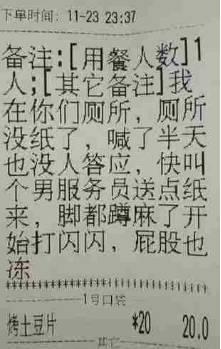 下单时间: 11-23 23:37
备注:[用餐人数]1
人;[其它备注]我
在你们厕所，厕所
没纸了，喊了半天
也没人答应，快叫
个男服务员送点纸
来，脚都蹲麻了开
始打闪闪，屁股也
冻
1号口袋
烤土豆片 *20 20.0
其它